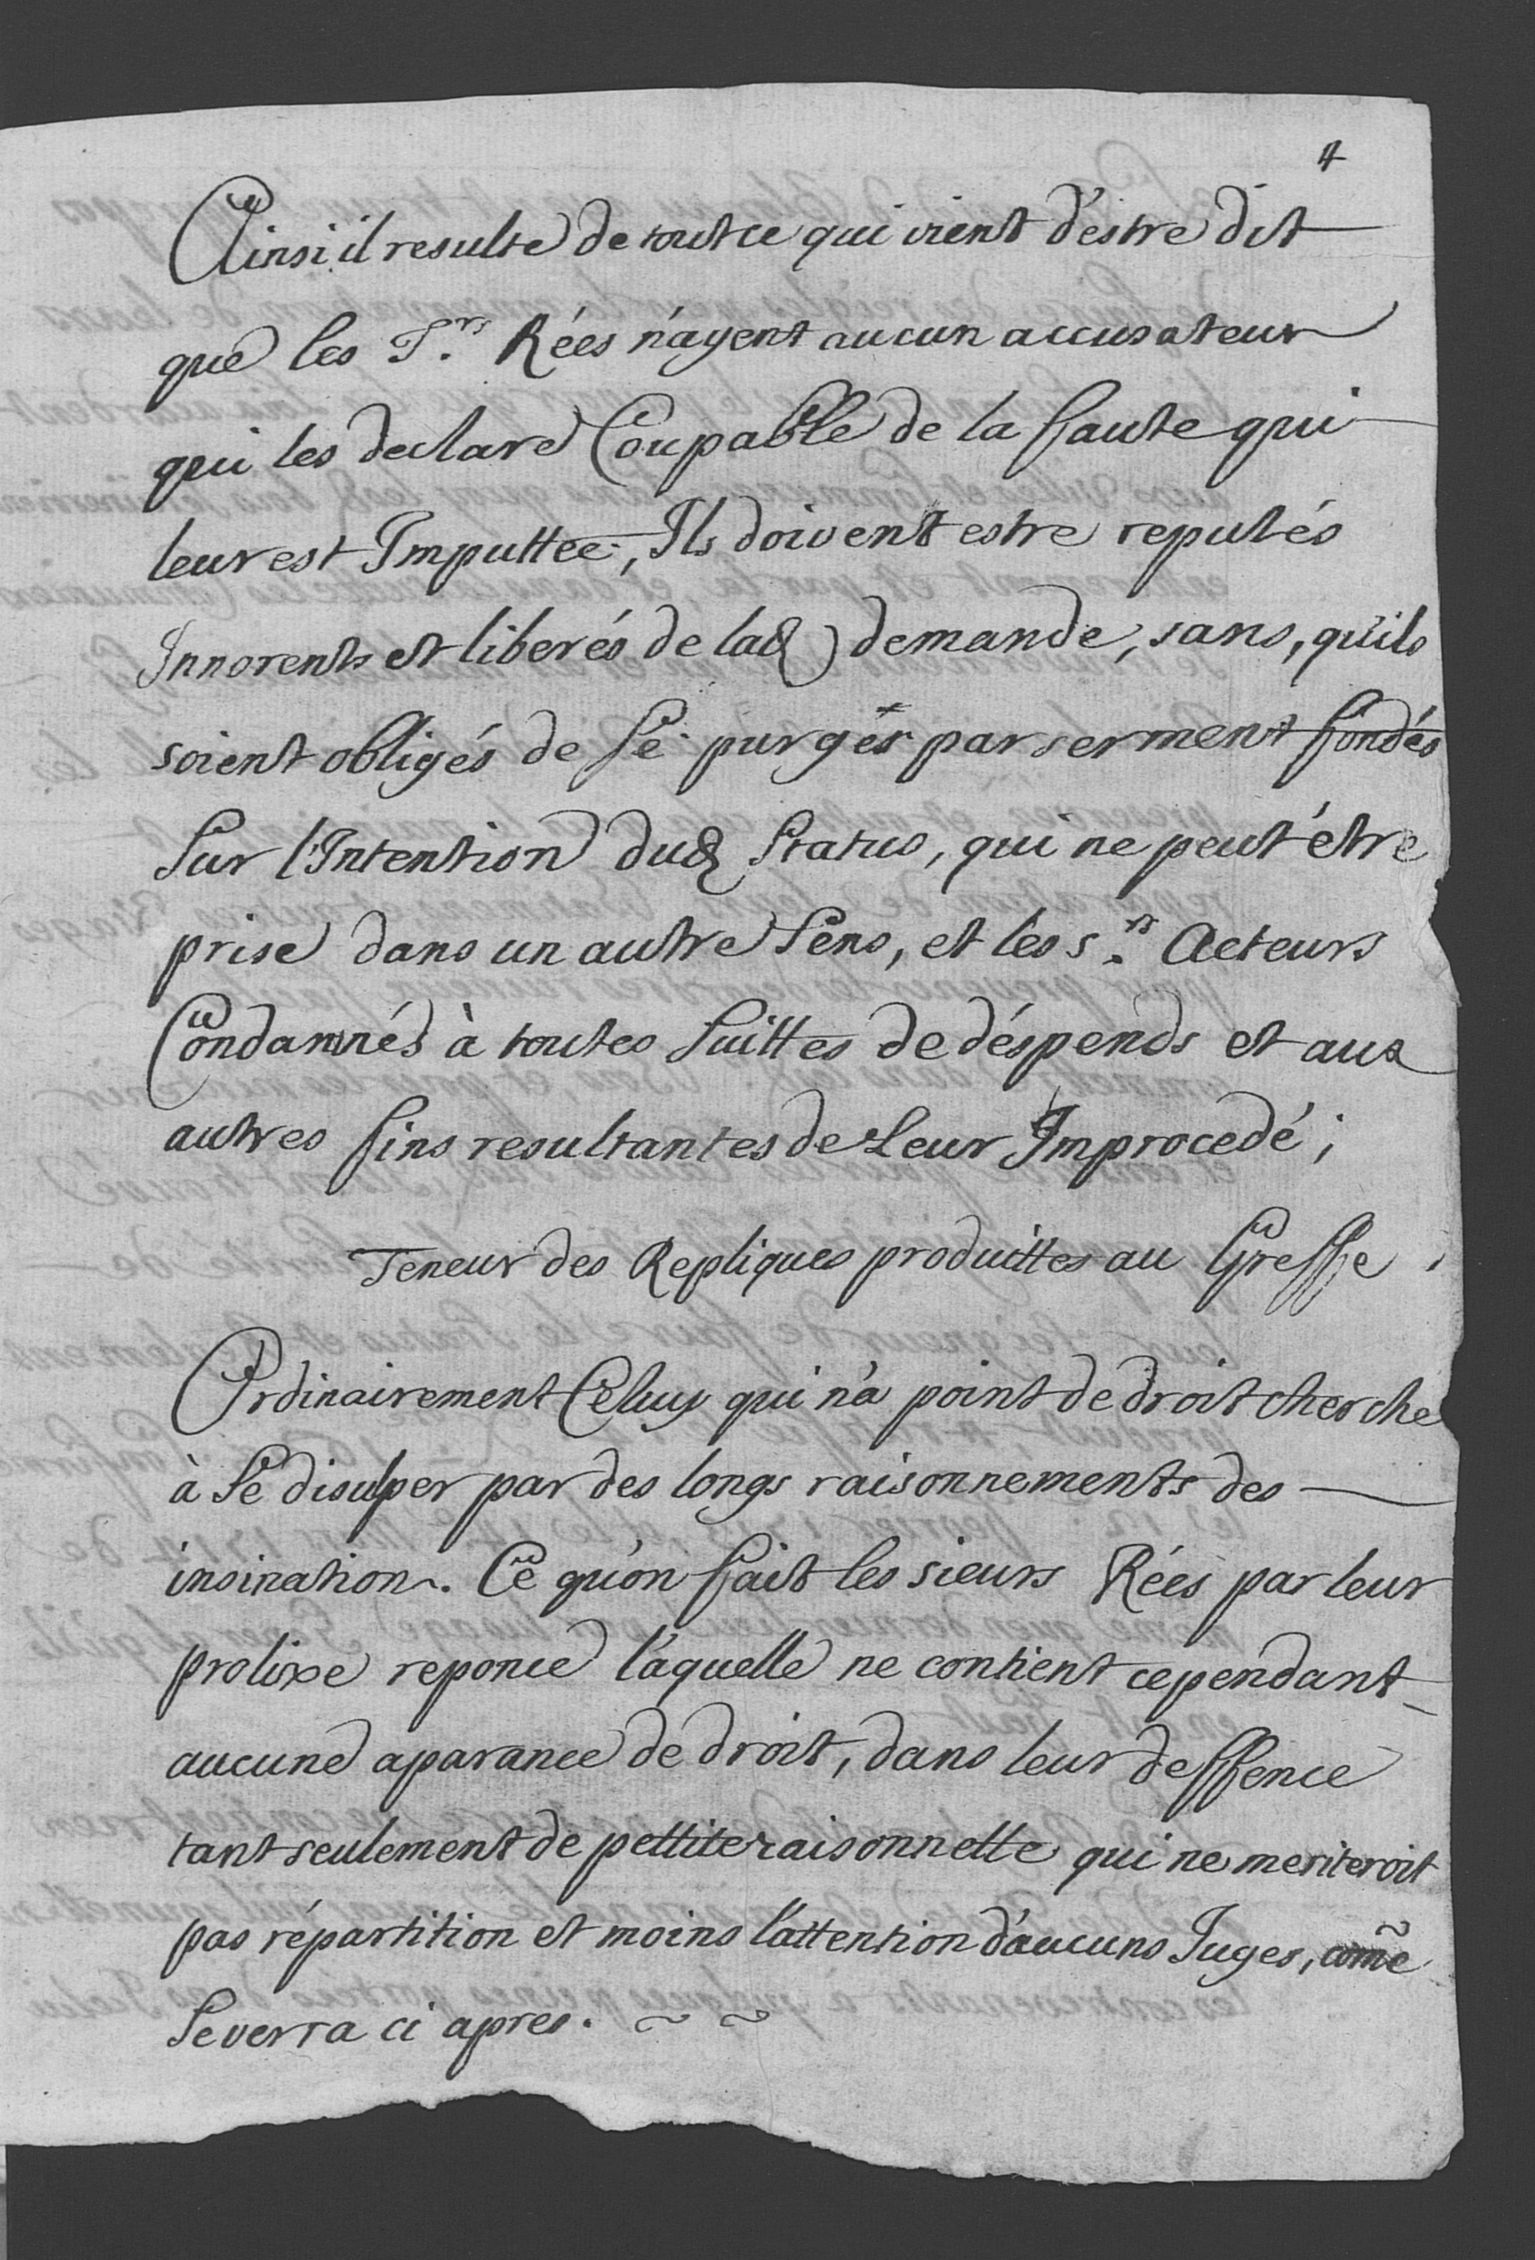 4
Ainsi il resulte de tout ce qui vient d'estre dit
que les Srs. Rées n'ayent aucun accusateur
qui les declare Coupable de la faute qui
leur est Imputtée, Ils doivent estre reputés
Innorents et liberés de lad. demande, sans, quils
soient obligés de Se purger par serment fondés
Sur l'Intention dud. Status, qui ne peut être
prise dans un autre Sens, et les srs. Acteurs
Condamnés à toutes Suittes de déspends et aux
autres fins resultantes de Leur Improcedé;
Teneur des Repliques produittes au Greffe
Ordinairement Celuy qui n'a point de droit cherche
à Se disulper par des longs raisonnements des
insination. Ce qu'on fait les sieurs Rées par leur
prolixe reponce l'aquelle ne contient cependant
aucune aparance de droit, dans leur deffence
tant seulement de pettite raisonnette qui ne meriteroit
pas répartition et moins l'attention d'aucuns Juges, com̃e
Se verra ci apres. ~ ~